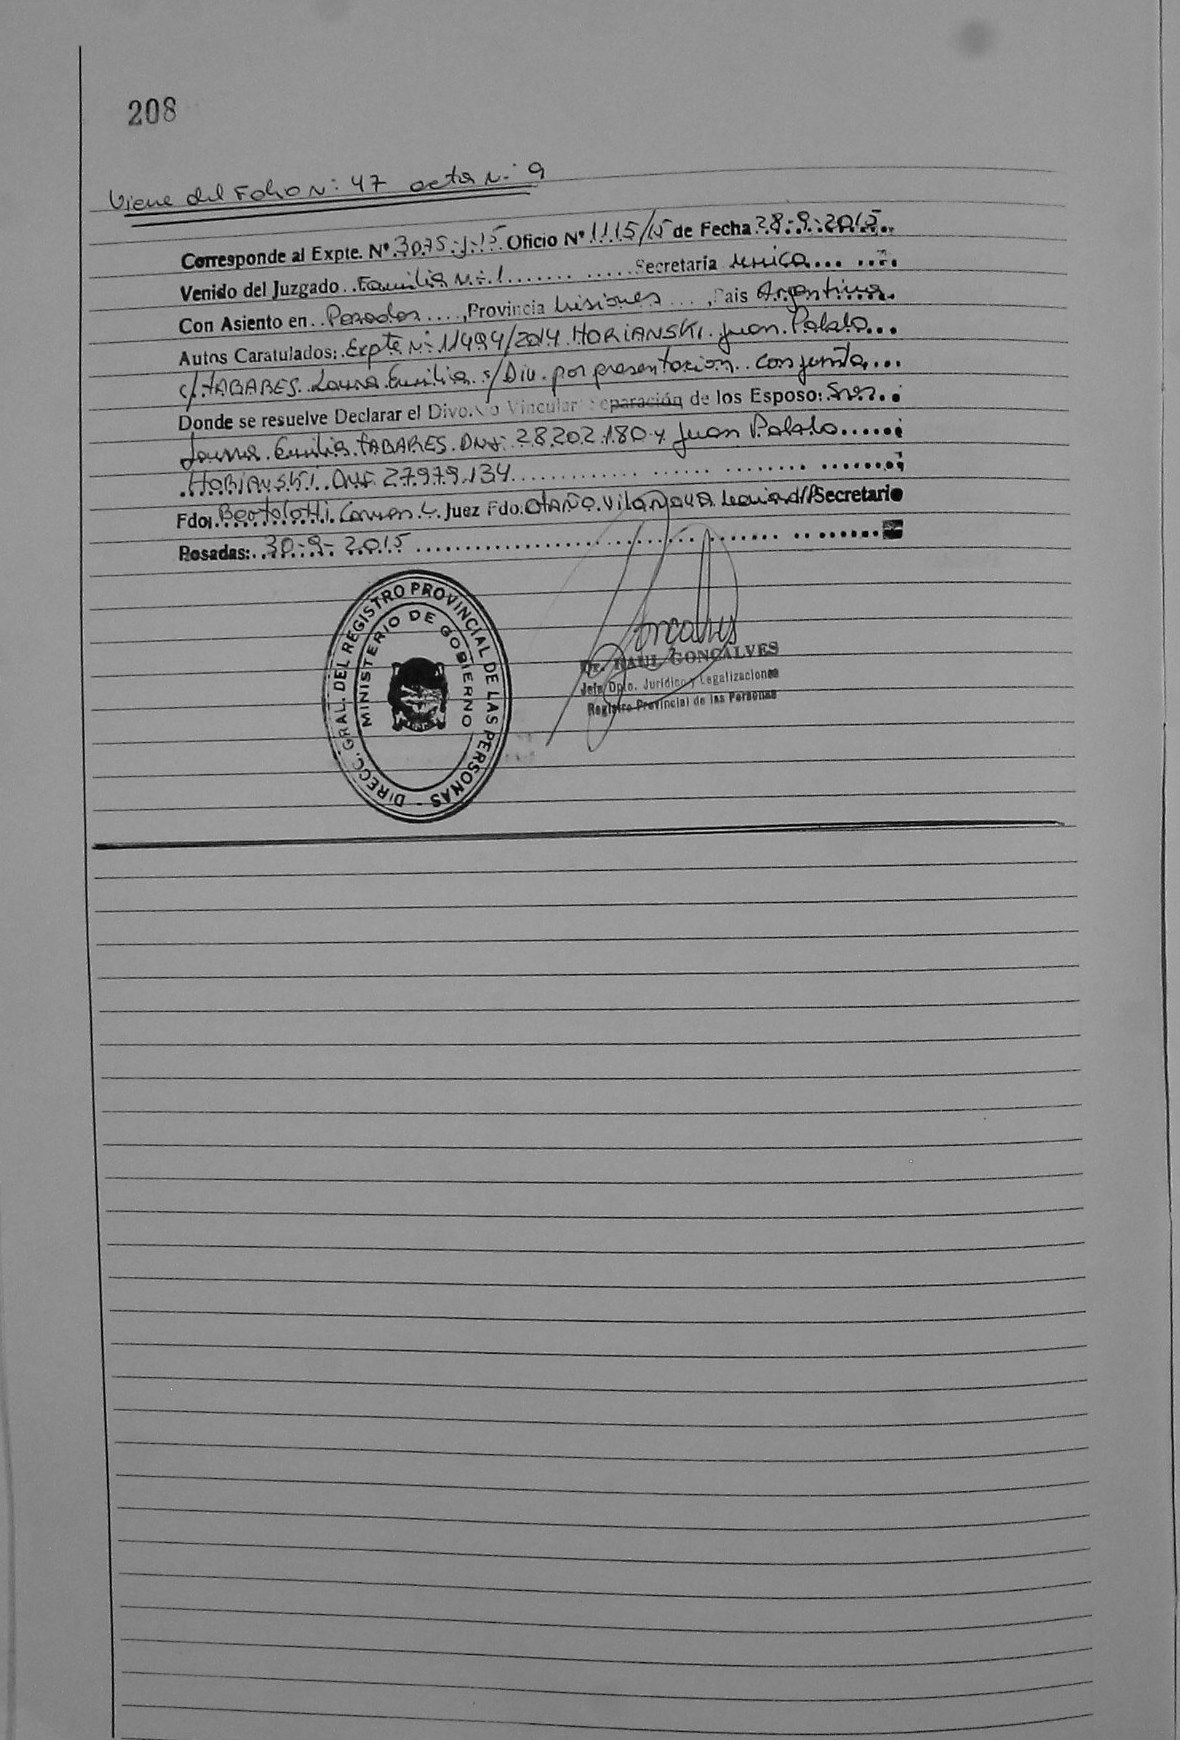 208
Viene del Folio N: 47 acta N: 9
Corresponde al Expte. Nº 3075-J-15 Oficio Nº 1115/15 de Fecha 28-9-2015
Venido del Juzgado Familia N: 1 Secretaría única
Con Asiento en Posadas, Provincia Misiones, País Argentina
Autos Caratulados: Expte N: 11494/2014 HORIANSKI Juan Pablo
c/ TABARES Laura Emilia s/ Div. por presentacion conjunta
Donde se resuelve Declarar el Divorcio Vincular separación de los Esposo: Sres.
Laura Emilia TABARES DNI: 28.202.180 y Juan Pablo
HORIANSKI DNI 27.979.134
Fdo. Bertolotti Carmen C. Juez Fdo. OTAÑO Vilanova Secretario
Posadas: 30-9-2015
DIRECC. GRAL. DEL REGISTRO PROVINCIAL DE LAS PERSONAS -
MINISTERIO DE GOBIERNO
Dr. RAUL GONCALVES
Jefe Dpto. Jurídico y Legalizaciones
Registro Provincial de las Personas